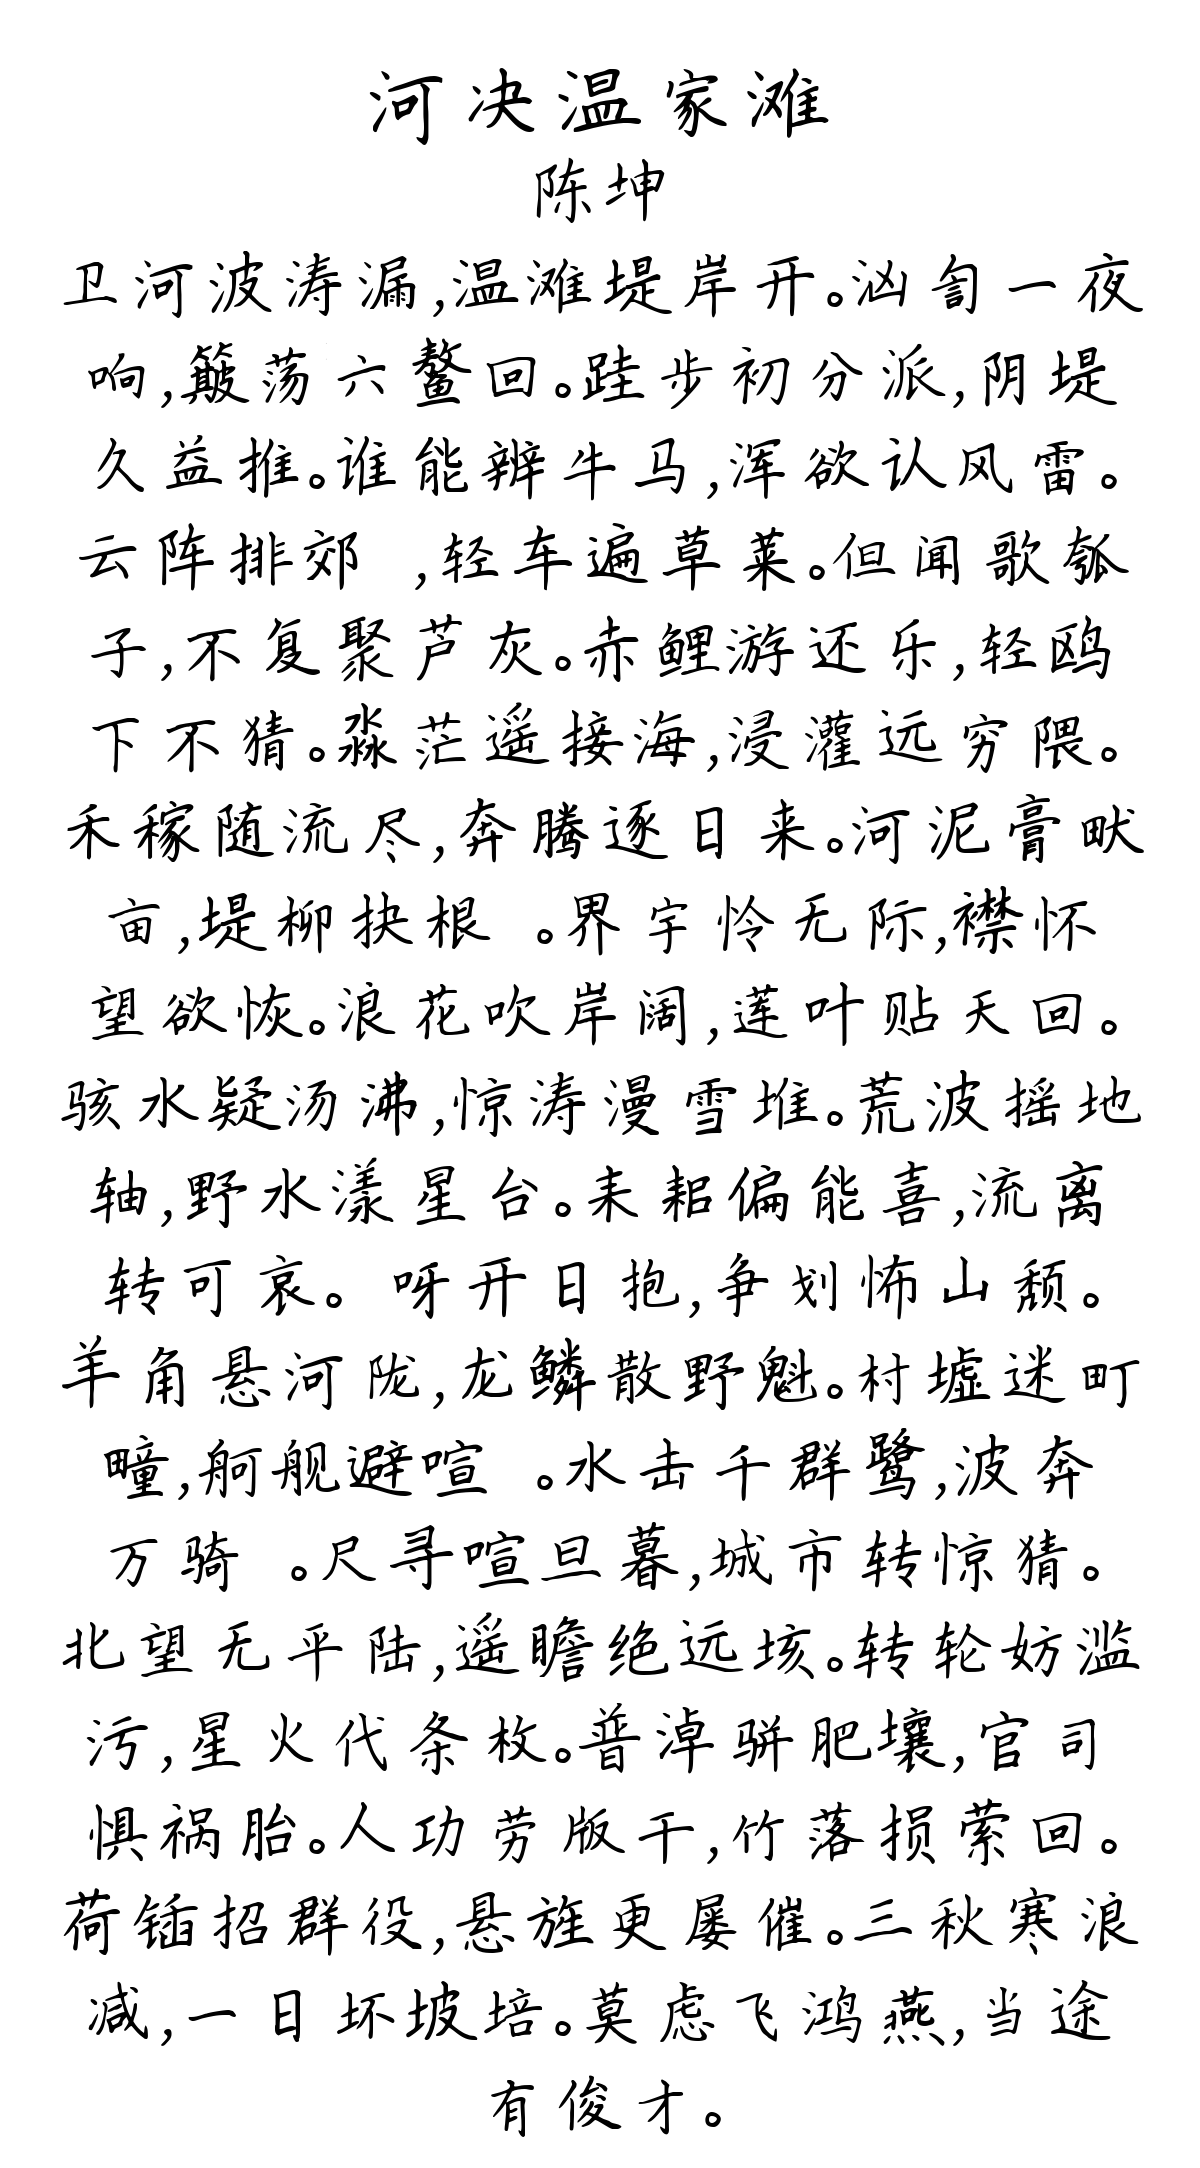 河决温家滩
陈坤
卫河波涛漏,温滩堤岸开。汹訇一夜
响,簸荡六鳌回。跬步初分派,阴堤
久益推。谁能辨牛马,浑欲认风雷。
云阵排郊 ,轻车遍草莱。但闻歌瓠
子,不复聚芦灰。赤鲤游还乐,轻鸥
下不猜。淼茫遥接海,浸灌远穷隈。
禾稼随流尽,奔腾逐日来。河泥膏畎
亩,堤柳抉根 。界宇怜无际,襟怀
望欲恢。浪花吹岸阔,莲叶贴天回。
骇水疑汤沸,惊涛漫雪堆。荒波摇地
轴,野水漾星台。耒耜偏能喜,流离
转可哀。 呀开日抱,争划怖山颓。
羊角悬河陇,龙鳞散野魁。村墟迷町
疃,舸舰避喧 。水击千群鹭,波奔
万骑 。尺寻喧旦暮,城市转惊猜。
北望无平陆,遥瞻绝远垓。转轮妨滥
污,星火代条枚。普淖骈肥壤,官司
惧祸胎。人功劳版干,竹落损萦回。
荷锸招群役,悬旌更屡催。三秋寒浪
减,一日坏坡培。莫虑飞鸿燕,当途
有俊才。